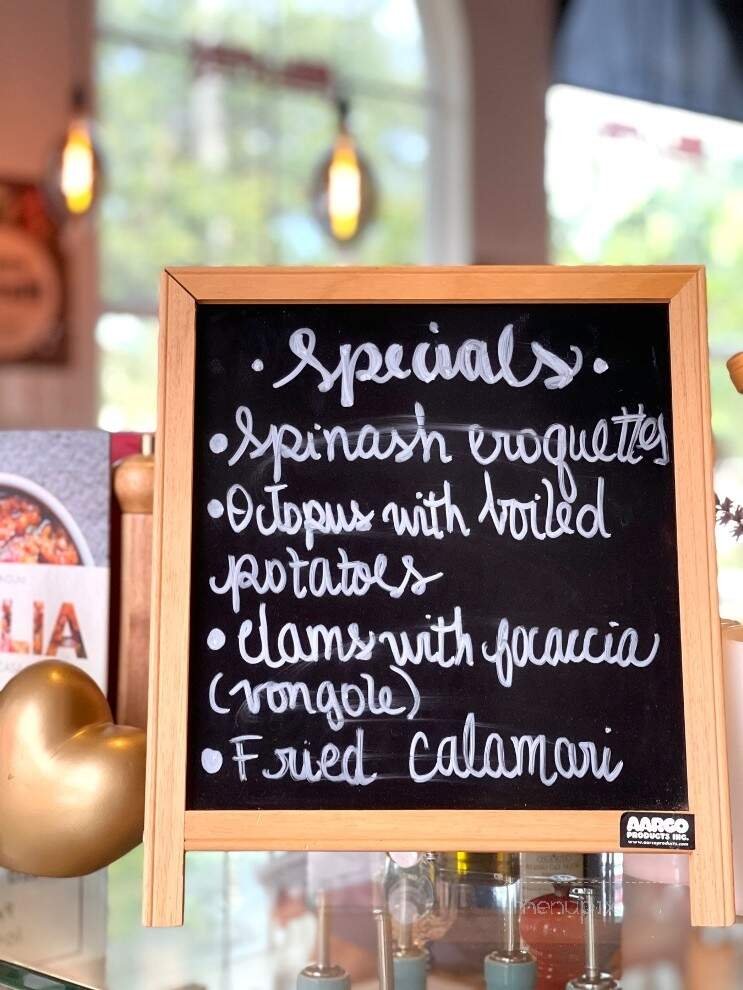 • Specials •
• Spinash croquettes
• Octopus with boiled
potatoes
• Clams with focaccia
(vongole)
• Fried calamari
AARCO
PRODUCTS INC.
www.aarcoproducts.com
LIA
menupix